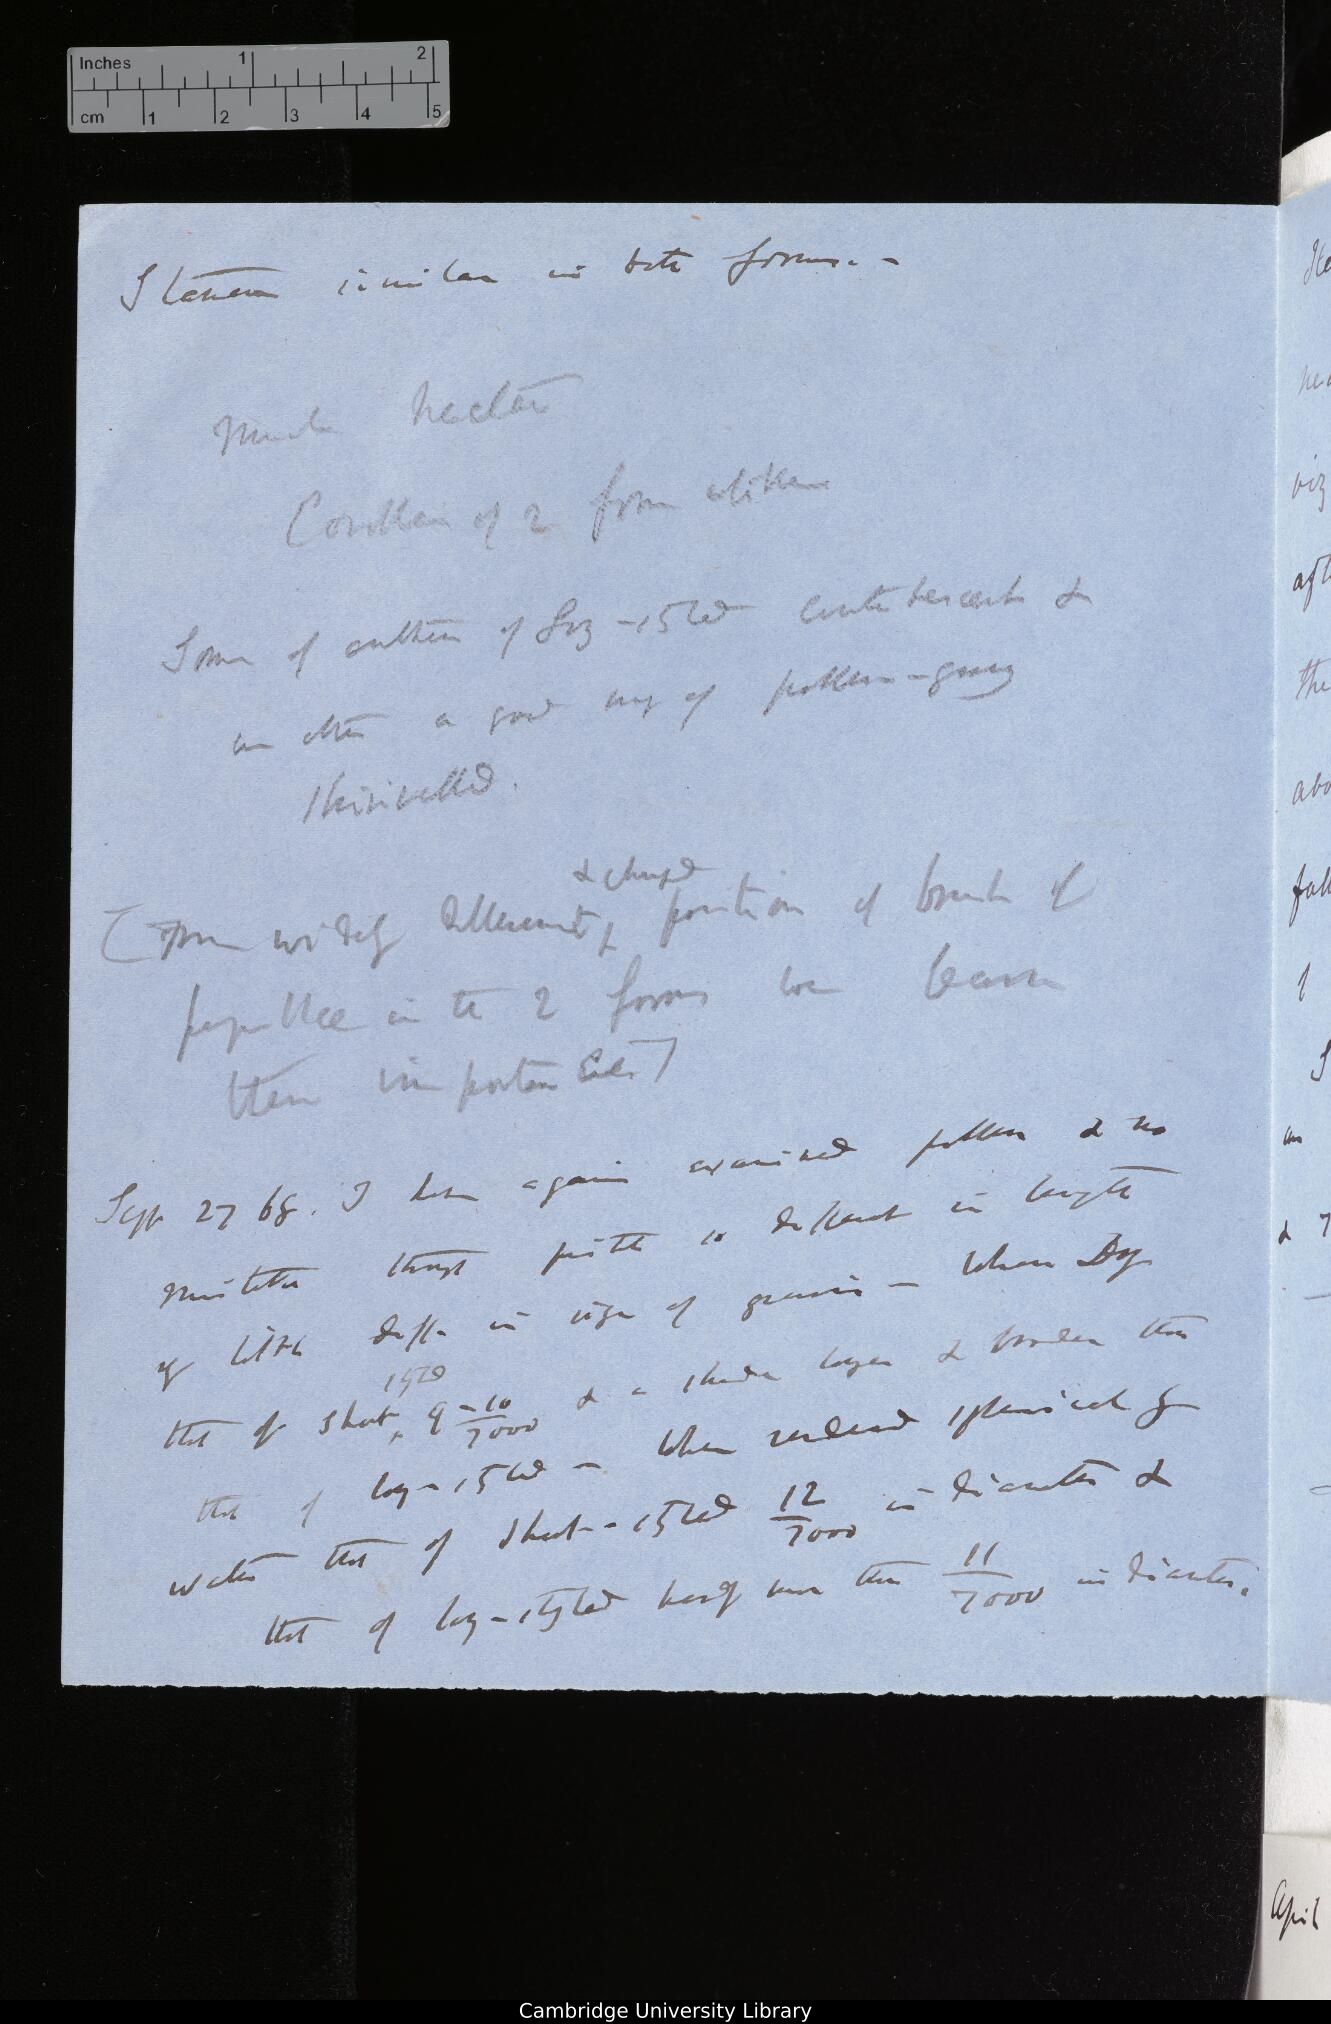 Inches 1 2
cm 1 2 3 4 5
Stamens similar in both forms. -
Much nectar
Corollas of 2 forms alike
Some of anthers of long-styled &
in others a good many of pollen-grains
shrivelled.
& shape
(From widely different, position of of
papillae in the 2 forms can learn
their importance)
Sept 27 68. I have again examined pollen & no
mistake though pistil so different in length
of little diffce in size of grains - When Dry
styled
that of short, 9-10/7000 & a shade longer & broader than
that of long-styled - When rendered spherical by
water that of short-styled 12/7000 in diameter &
that of long-styled hardly more than 11/7000 in diameter.
viz
the
April
Cambridge University Library